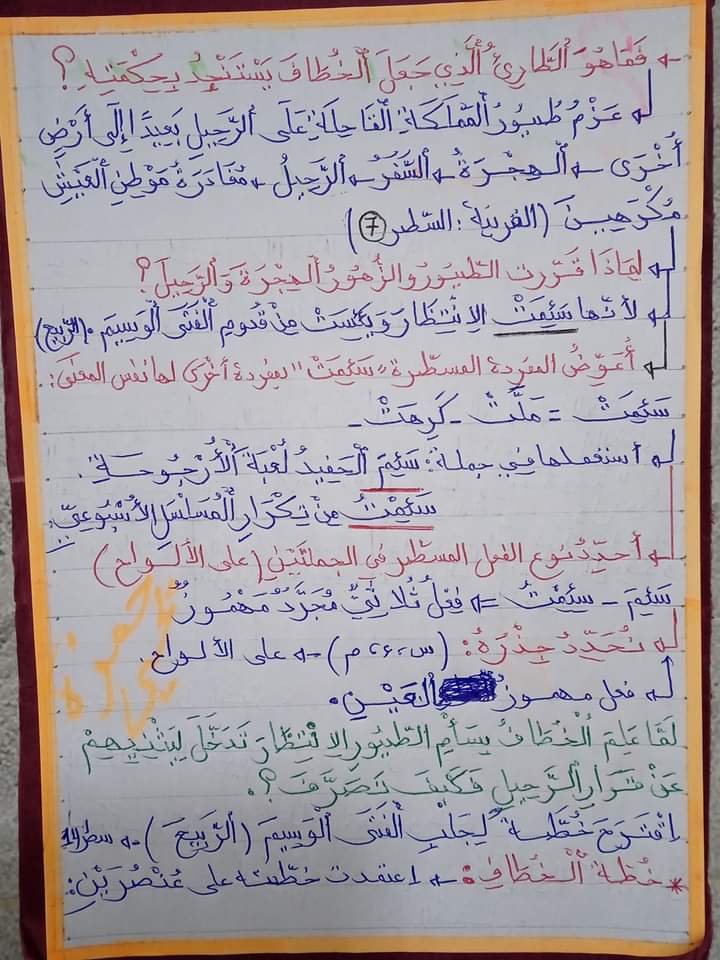 ← فَمَا هُوَ ٱلطَّارِئُ ٱلَّذِي جَعَلَ ٱلْخُطَّافَ يَسْتَنْجِدُ بِحِكْمَتِهِ ؟
عَزْمُ طُيُورُ ٱلْمَمْلَكَةِ ٱلْقَاحِلَةِ عَلَى ٱلرَّحِيلِ بَعِيدًا إِلَى أَرْضٍ
أُخْرَى ← ٱلْهِجْرَةُ ← ٱلسَّفَرُ ← ٱلرَّحِيلُ ← مُغَادَرَةُ مَوْطِنِ ٱلْعَيْشِ
مُكْرَهِينَ (القرينة : السّطر 7)
لِمَاذَا قَرَّرت الطّيُورُ والزُّهُورُ ٱلْهِجْرَةَ وَٱلرَّحِيلَ ؟
لأنّها سَئِمَتْ الاِنْتِظَارَ وَيَئِسَتْ مِنْ قُدُومِ ٱلْفَتَى ٱلْوَسِيمِ . (الرّبيع)
أُعَوِّضُ المفردة المسطّرة "سَئِمَتْ" بمفردة أخرى لها نفس المعنى :
سَئِمَتْ = مَلَّتْ - كَرِهَتْ -
أستعملها في جملة : سَئِمَ ٱلْحَفِيدُ لُعْبَةَ ٱلْأُرْجُوحَةِ .
سَئِمْتُ مِنْ تِكْرَارِ ٱلْمُسَلْسَلِ الأُسْبُوعِيِّ .
أحدّد نوع الفعل المسطّر في الجملتَيْنِ (على الألواح)
سَئِمَ - سئِمْتُ = فِعْلٌ ثُلَاثِيٌّ مُجَرَّدٌ مَهْمُوزٌ
نُحَدِّدُ جِذْرَهُ : (س ، ء ، م) ← على الألواح .
فعل مهموز ٱلْعَيْنِ .
لَمَّا عَلِمَ ٱلْخُطَّافُ بِسَأَمِ الطّيُورِ الاِنْتِظَارَ تَدَخَّلَ لِيُثْنِيَهِمْ
عَنْ قَرَارِ ٱلرَّحِيلِ فَكَيْفَ تَصَرَّفَ ؟
اِقْتَرَحَ خُطَّةً لِجَلْبِ ٱلْفَتَى ٱلْوَسِيمَ (ٱلرَّبِيعَ) ← سطر 14
* خُطَّةُ ٱلْخُطَّافِ : ← اعتمدت خطّته على عُنْصُرَيْنِ :
حمزة